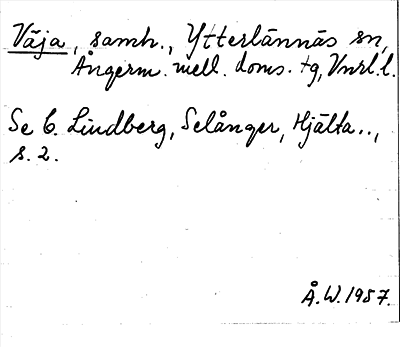 Väja, samh., Ytterlännäs sn,
Ångerm. mell. doms. tg, Vnrl. l.
Se C. Lindberg, Selånger, Hjälta..,
s. 2.
Å.W.1987.